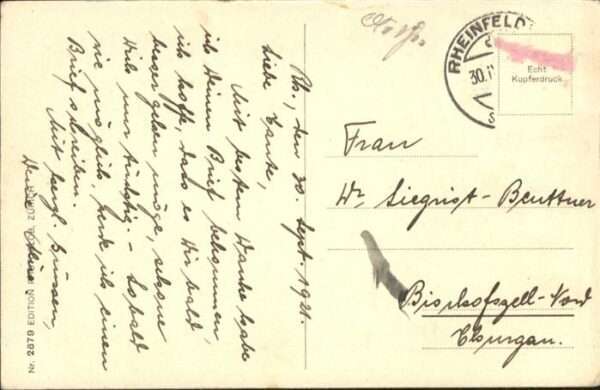 Rh., den 30. Sept. 1921.
Liebe Tante,
Mit bestem Danke habe
ich Deinen Brief bekommen,
ich hoffe, dass es Dir bald
besser gehen möge, schone
Dich nur tüchtig. – Sobald
wie möglich, werde ich einen
Brief schreiben.
Mit herzl. Grüssen,
Deine
Nr. 2976 EDITION ZÜRICH
RHEINFELD
30.I
Echt
Kupferdruck.
Frau
Dr. Siegrist-Beuttner
Bischofszell-Nord
Thurgau.